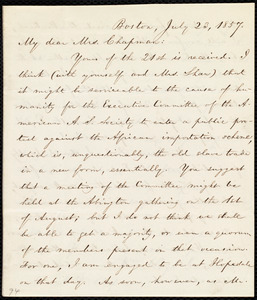 Boston, July 23, 1857.
My dear Mrs. Chapman:
Yours of the 21st is received. I
think (with yourself and Mrs. Shaw) that
it might be serviceable to the cause of hu-
manity for the Executive Committee of the A-
merican A. S. Society to enter a public pro-
test against the African importation scheme,
which is, unquestionably, the old slave trade
in a new form, essentially. You suggest
that a meeting of the Committee might be
held at the Abington gathering on the 1st
of August; but I do not think we shall
be able to get a majority, or even a quorum
of the members present on that occasion.
For one, I am engaged to be at Hopedale
on that day. As soon, however, as Mr.